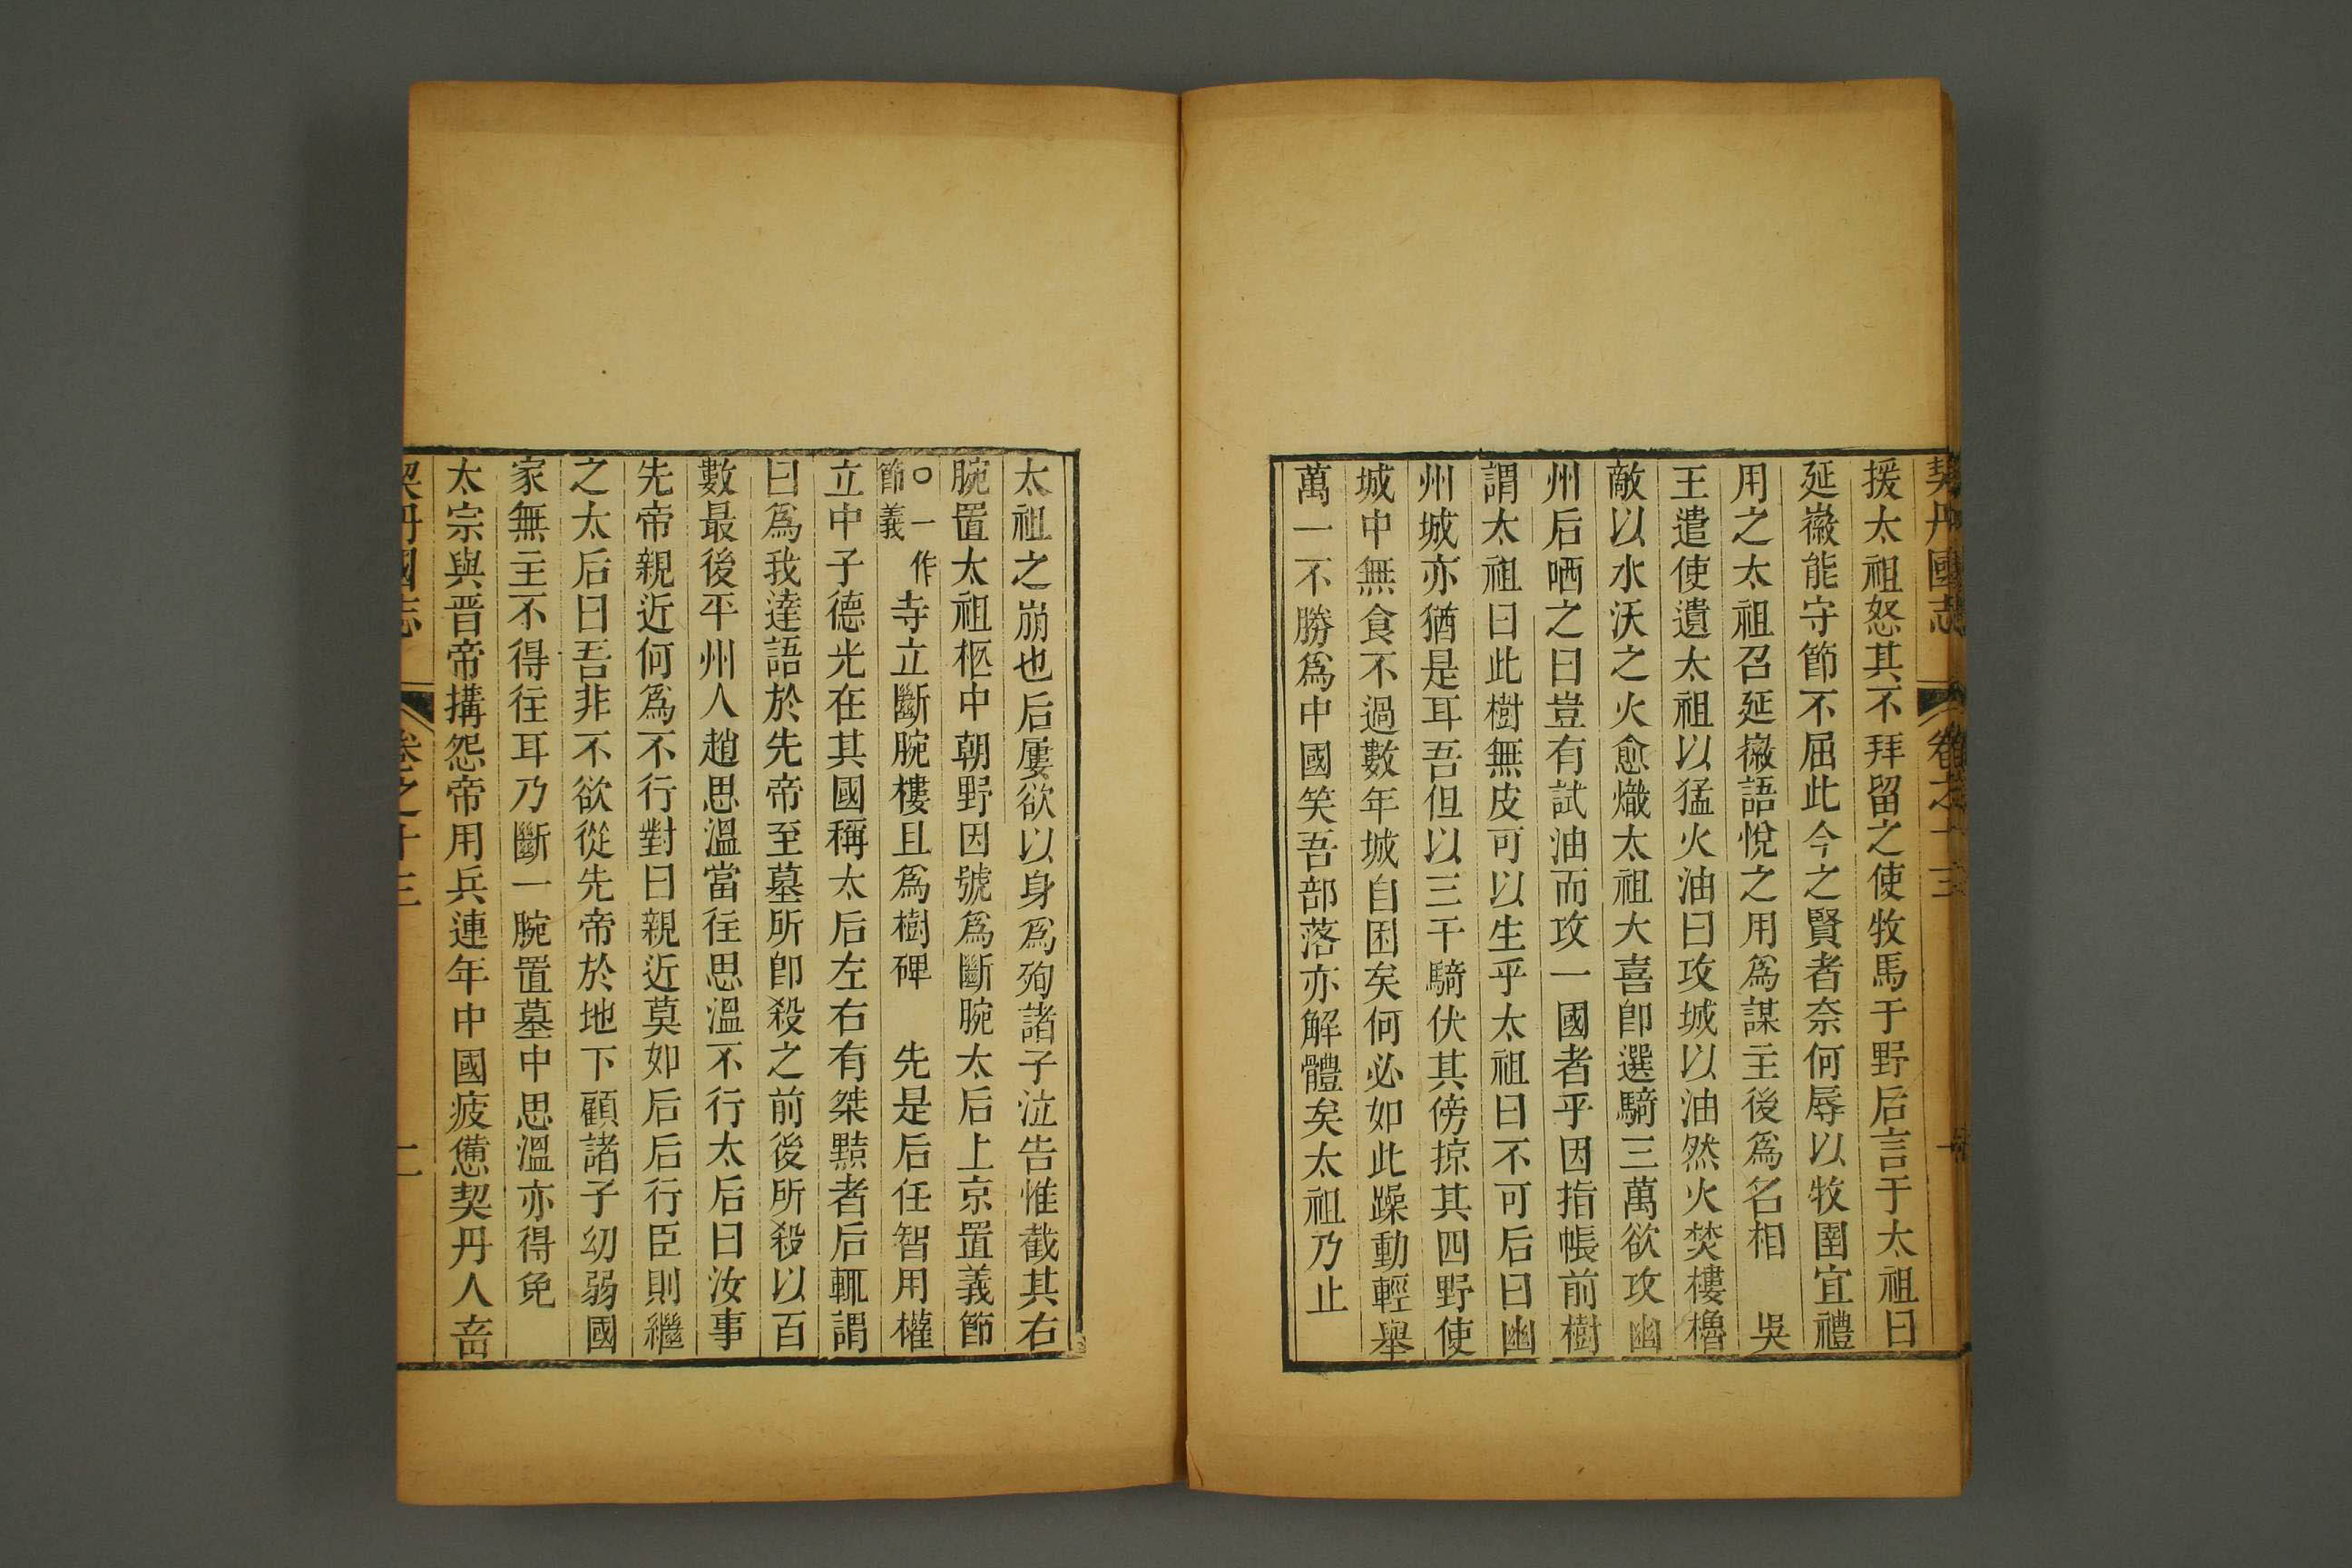 契丹國志 卷之十三
援太祖怒其不拜留之使牧馬于野后言于太祖曰
延徽能守節不屈此今之賢者奈何辱以牧圉宜禮
用之太祖召延徽語悅之用爲謀主後爲名相 吳
王遣使遺太祖以猛火油曰攻城以油然火焚樓櫓
敵以水沃之火愈熾太祖大喜卽選騎三萬欲攻幽
州后哂之曰豈有試油而攻一國者乎因指帳前樹
謂太祖曰此樹無皮可以生乎太祖曰不可后曰幽
州城亦猶是耳吾但以三千騎伏其傍掠其四野使
城中無食不過數年城自困矣何必如此躁動輕舉
萬一不勝爲中國笑吾部落亦解體矣太祖乃止
太祖之崩也后屢欲以身爲殉諸子泣告惟截其右
腕置太祖柩中朝野因號爲斷腕太后上京置義節
○一作
節義
寺立斷腕樓且爲樹碑 先是后任智用權
立中子德光在其國稱太后左右有桀黠者后輒謂
曰爲我達語於先帝至墓所卽殺之前後所殺以百
數最後平州人趙思溫當往思溫不行太后曰汝事
先帝親近何爲不行對曰親近莫如后后行臣則繼
之太后曰吾非不欲從先帝於地下顧諸子幼弱國
家無主不得往耳乃斷一腕置墓中思溫亦得免
太宗與晋帝搆怨帝用兵連年中國疲憊契丹人畜
契丹國志 卷之十三 二